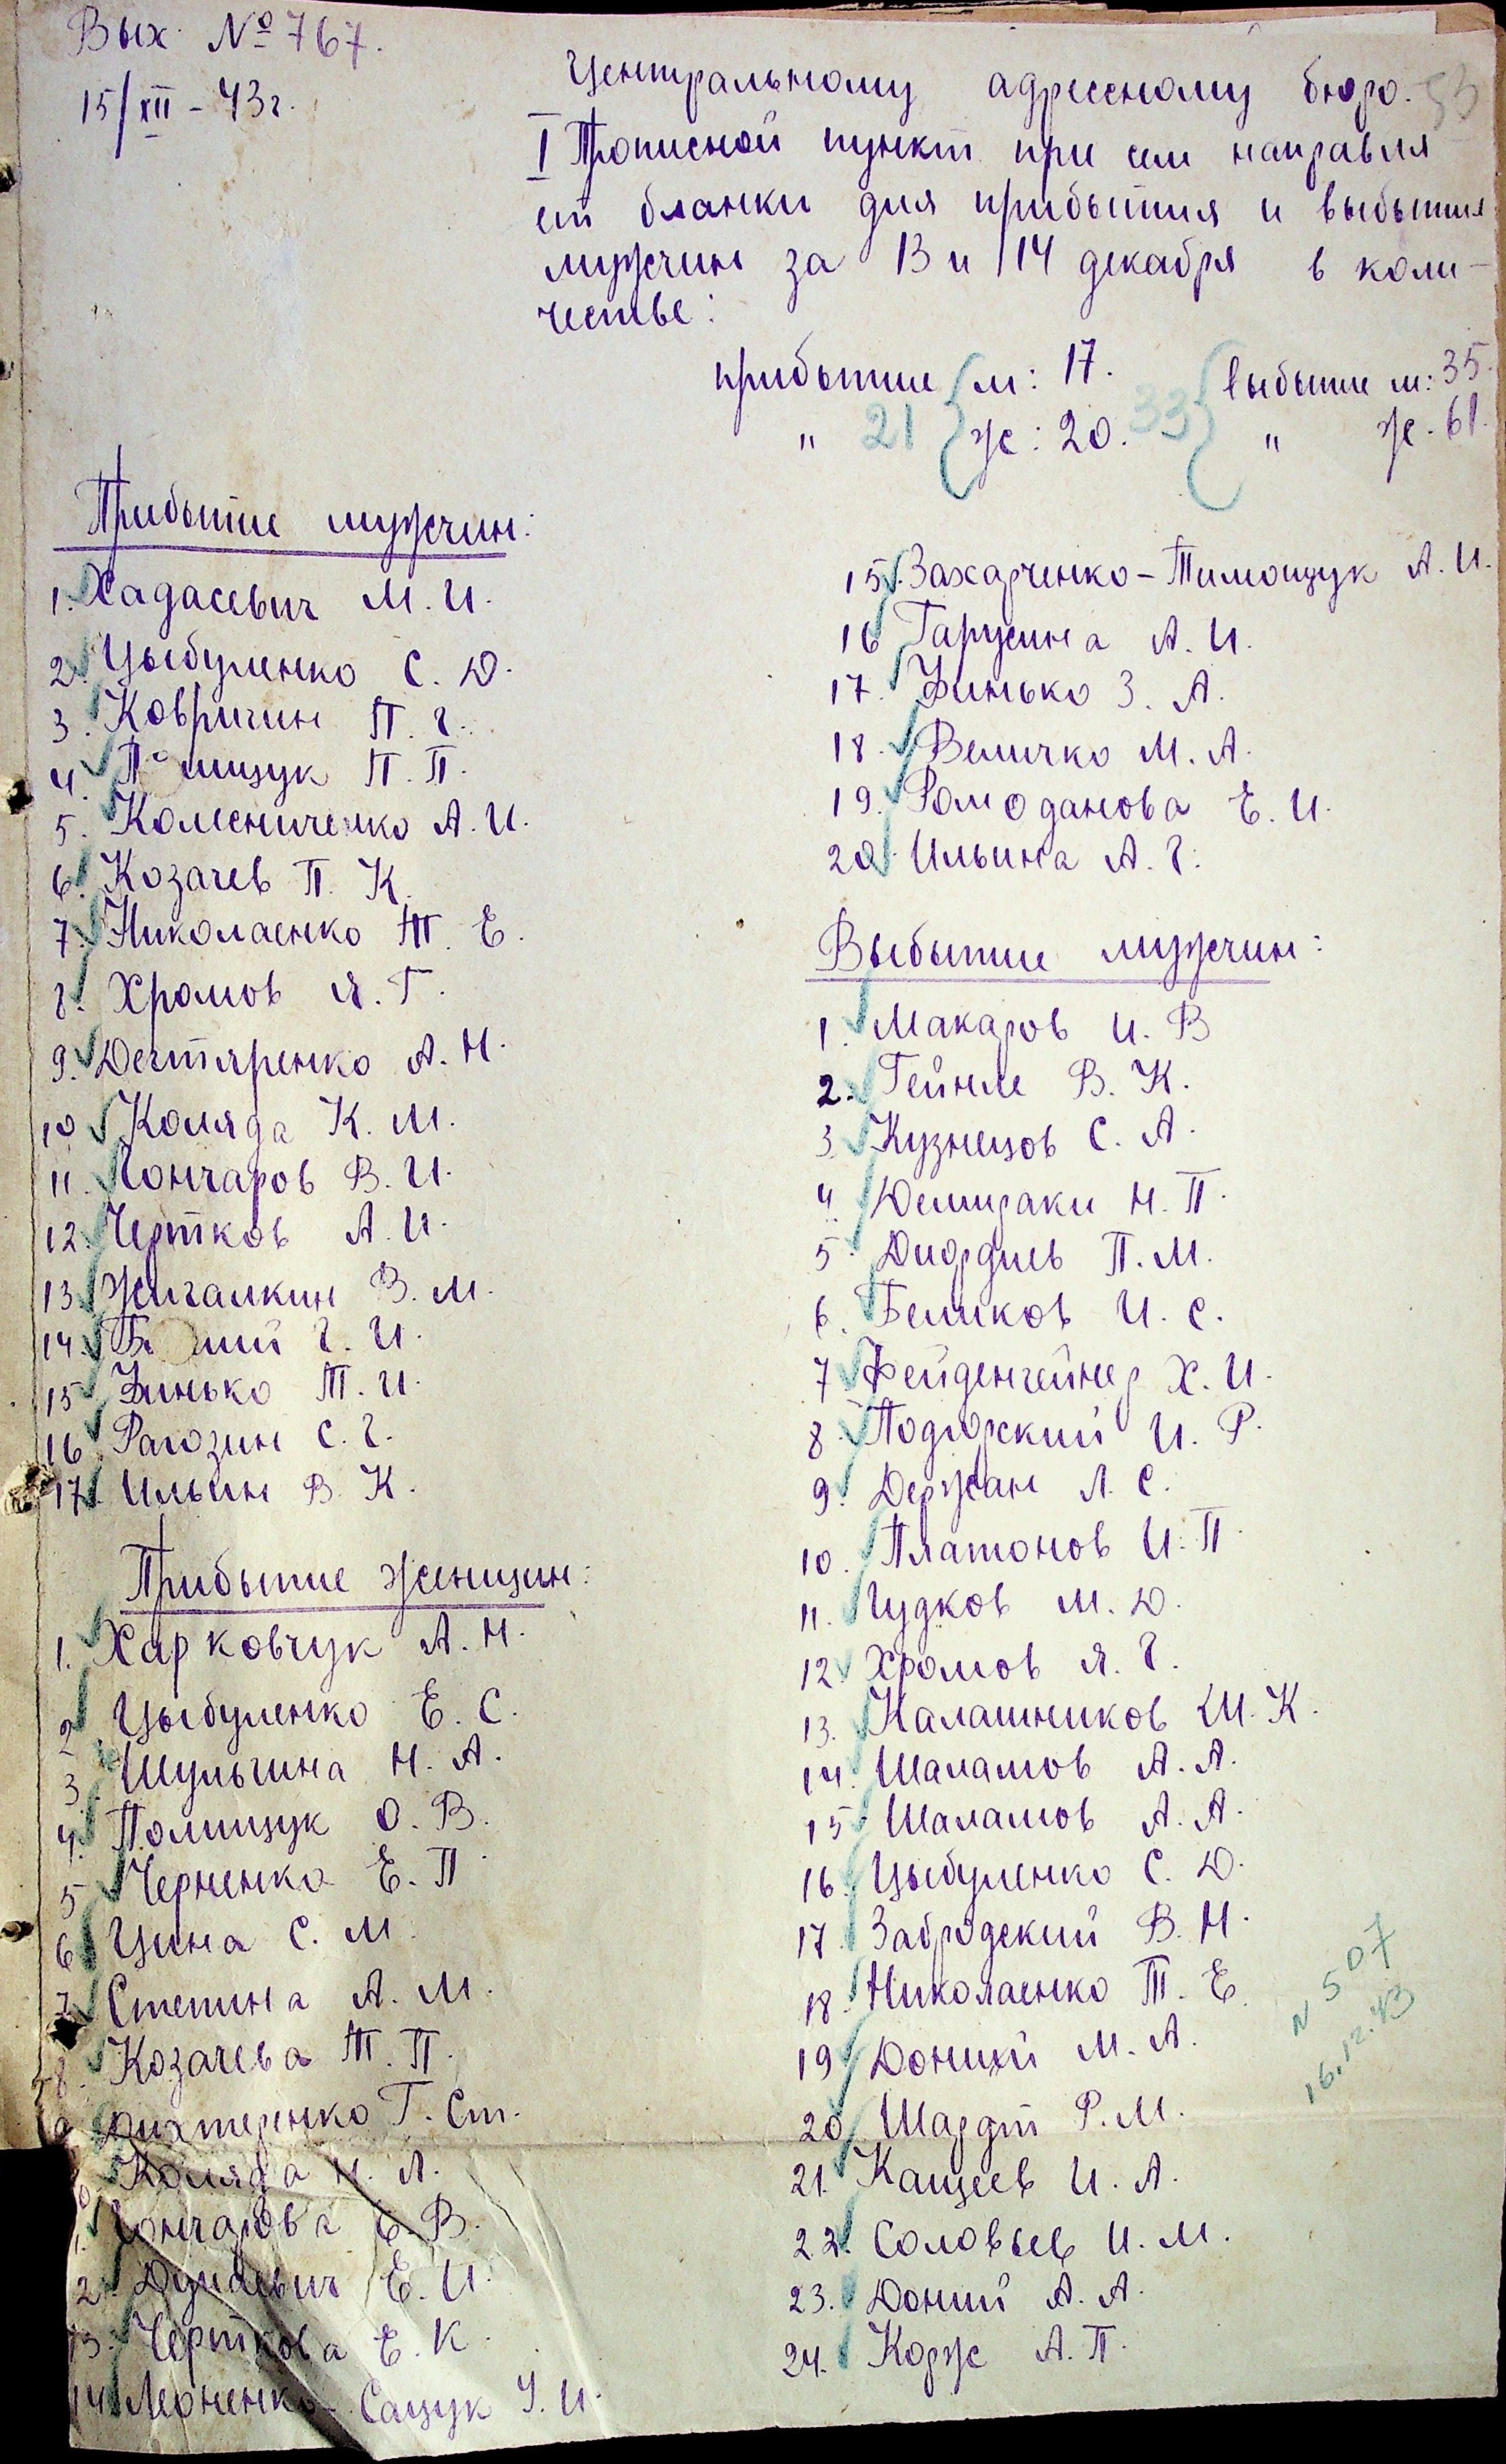 Вых. № 767.
15/XII - 43г.
Центральному адресному бюро.
53
I Прописной пункт при сем направля
ет бланки для прибытия и выбытия
мужчин за 13 и 14 декабря в коли-
честве:
прибытие м: 17. выбытие м: 35.
" 21 ж: 20. 33 " ж. 61.
Прибытие мужчин:
1. Хадасевич М. И.
2. Цыбуленко С. Д.
3. Ковригин П. Г.
4. П лищук П. П.
5. Колесниченко А. И.
6. Козачев П. К.
7. Николаенко Т. Е.
8. Хромов Я. Г.
9. Дегтяренко А. Н.
10 Коляда К. М.
11. Гончаров В. И.
12. Чертков А. И.
13. Жигалкин В. М.
14. Г. И.
15 Зинько Т. И.
16 Рагозин С. Г.
17. Ильин В. К.
Прибытие женщин:
1. Харковчук А. Н.
2 Цыбуленко Е. С.
3. Шульгина Н. А.
4. Полищук О. В.
5 Черненко Е. П
6 Цина С. М
7 Степина А. М.
8. Козачева Т. П.
9 Дихтеренко Г. Ст.
Коляда Н. А.
1. Гончарова Е. В.
2. Дунаевич Е. И.
13. Черткова Е. К.
14 Леоненко-Сащук У. И.
15. Захарченко-Тимощук А. И.
16 Гарусина А. И.
17. Зинько З. А.
18. Величко М. А.
19. Ромоданова Е. И.
20. Ильина А. Г.
Выбытие мужчин:
1. Макаров И. В
2. Гейнле В. К.
3. Кузнецов С. А.
4. Демираки Н. П.
5. Диордиев П. М.
6. Беликов И. С.
7 Фейденгеймер Х. И.
8. Подгорский И. Р.
9. Держан Л. С.
10. Платонов И. П
11. Гудков М. Д.
12 Хромов Я. Г.
13. Калашников И. К.
14. Шаламов А. А.
15 Шаламов А. А.
16. Цыбуленко С. Д.
17. Забродский В. Н.
18. Николаенко Т. Е.
19 Доний М. А.
20 Шардт Р. М.
21. Кащеев И. А.
22. Соловьев И. М.
23. Доний А. А.
24. Корж А. П.
N 507
16.12.43